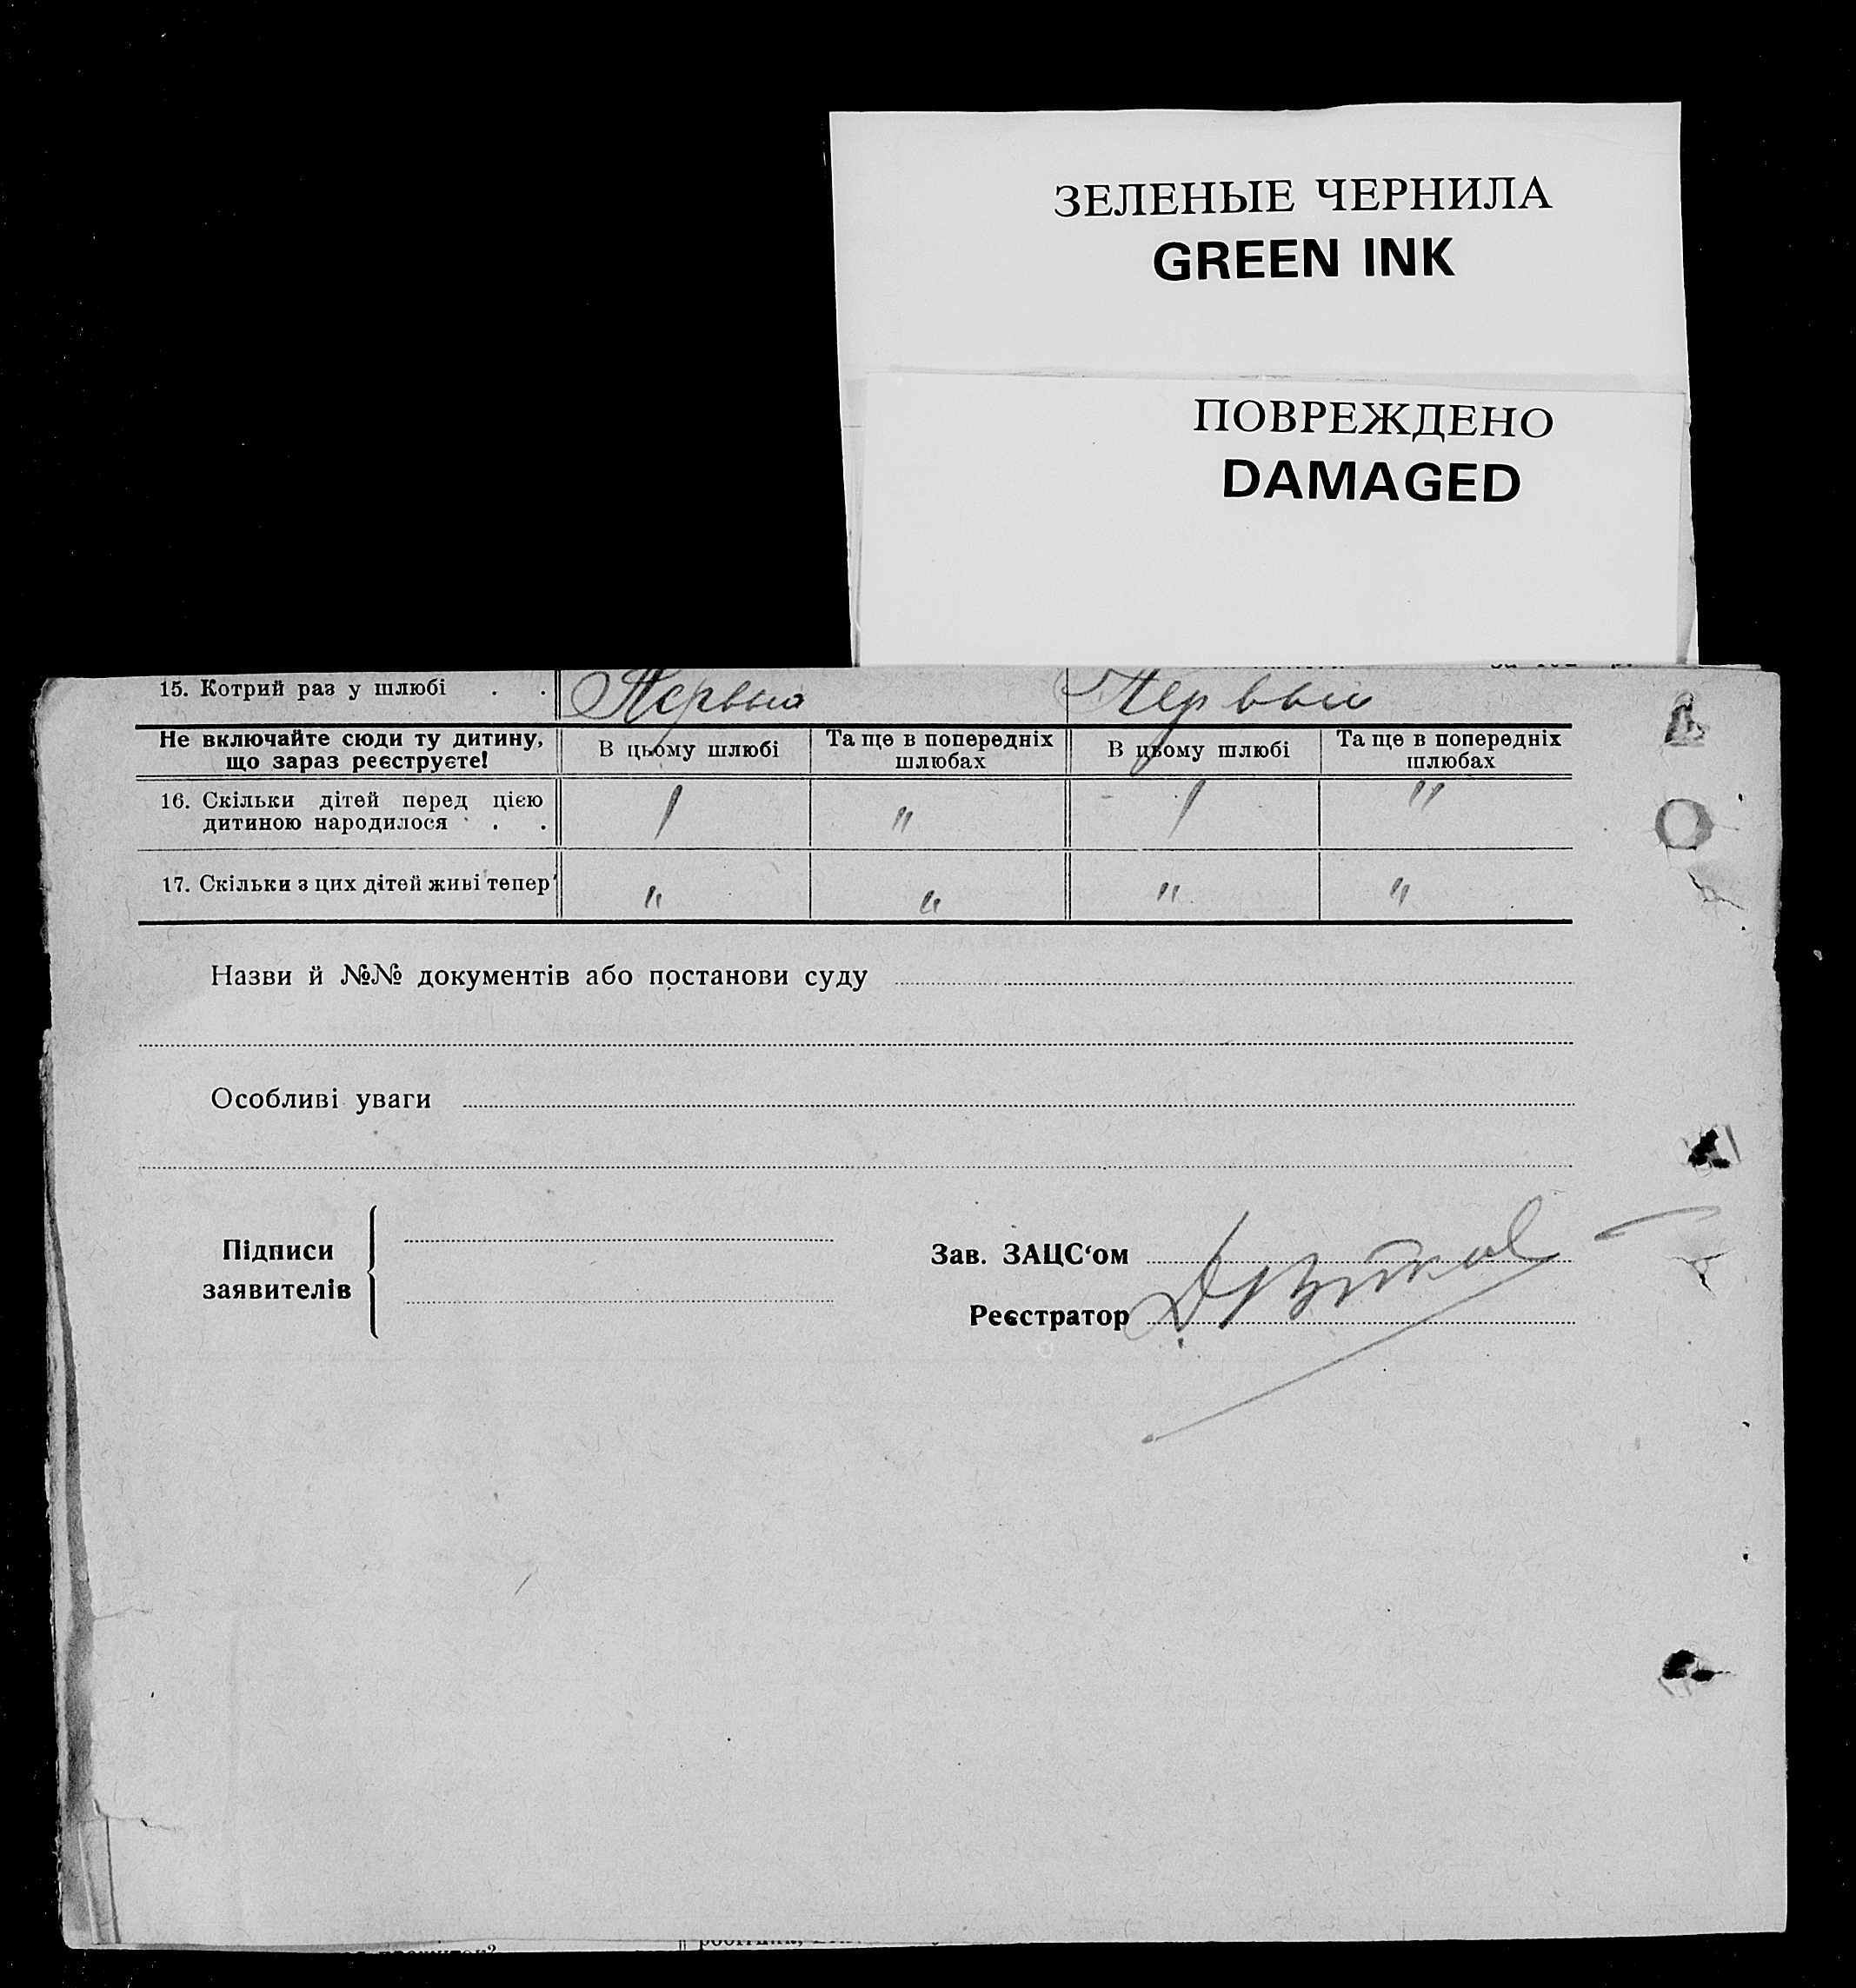 ЗЕЛЕНЫЕ ЧЕРНИЛА
GREEN INK
ПОВРЕЖДЕНО
DAMAGED
15. Котрий раз у шлюбі . . Первый Первый
Не включайте сюди ту дитину, що зараз реєструєте!
В цьому шлюбі
Та ще в попередніх шлюбах
В цьому шлюбі
Та ще в попередніх шлюбах
16. Скільки дітей перед цією
дитиною народилося . . 1 " 1 "
17. Скільки з цих дітей живі тепер " " " "
Назви й №№ документів або постанови суду
Особливі уваги
Підписи
заявителів
Зав. ЗАЦС‘ом
Реєстратор